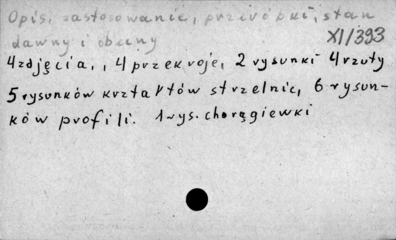 Opis, zastosowanie, przeróbki, stan
dawny i obecny
XI/393
4 zdjęcia, , 4 przekroje, 2 rysunki 4 rzuty
5 rysunków kształtów strzelnic, 6 rysun-
ków profili. 1 rys. chorągiewki